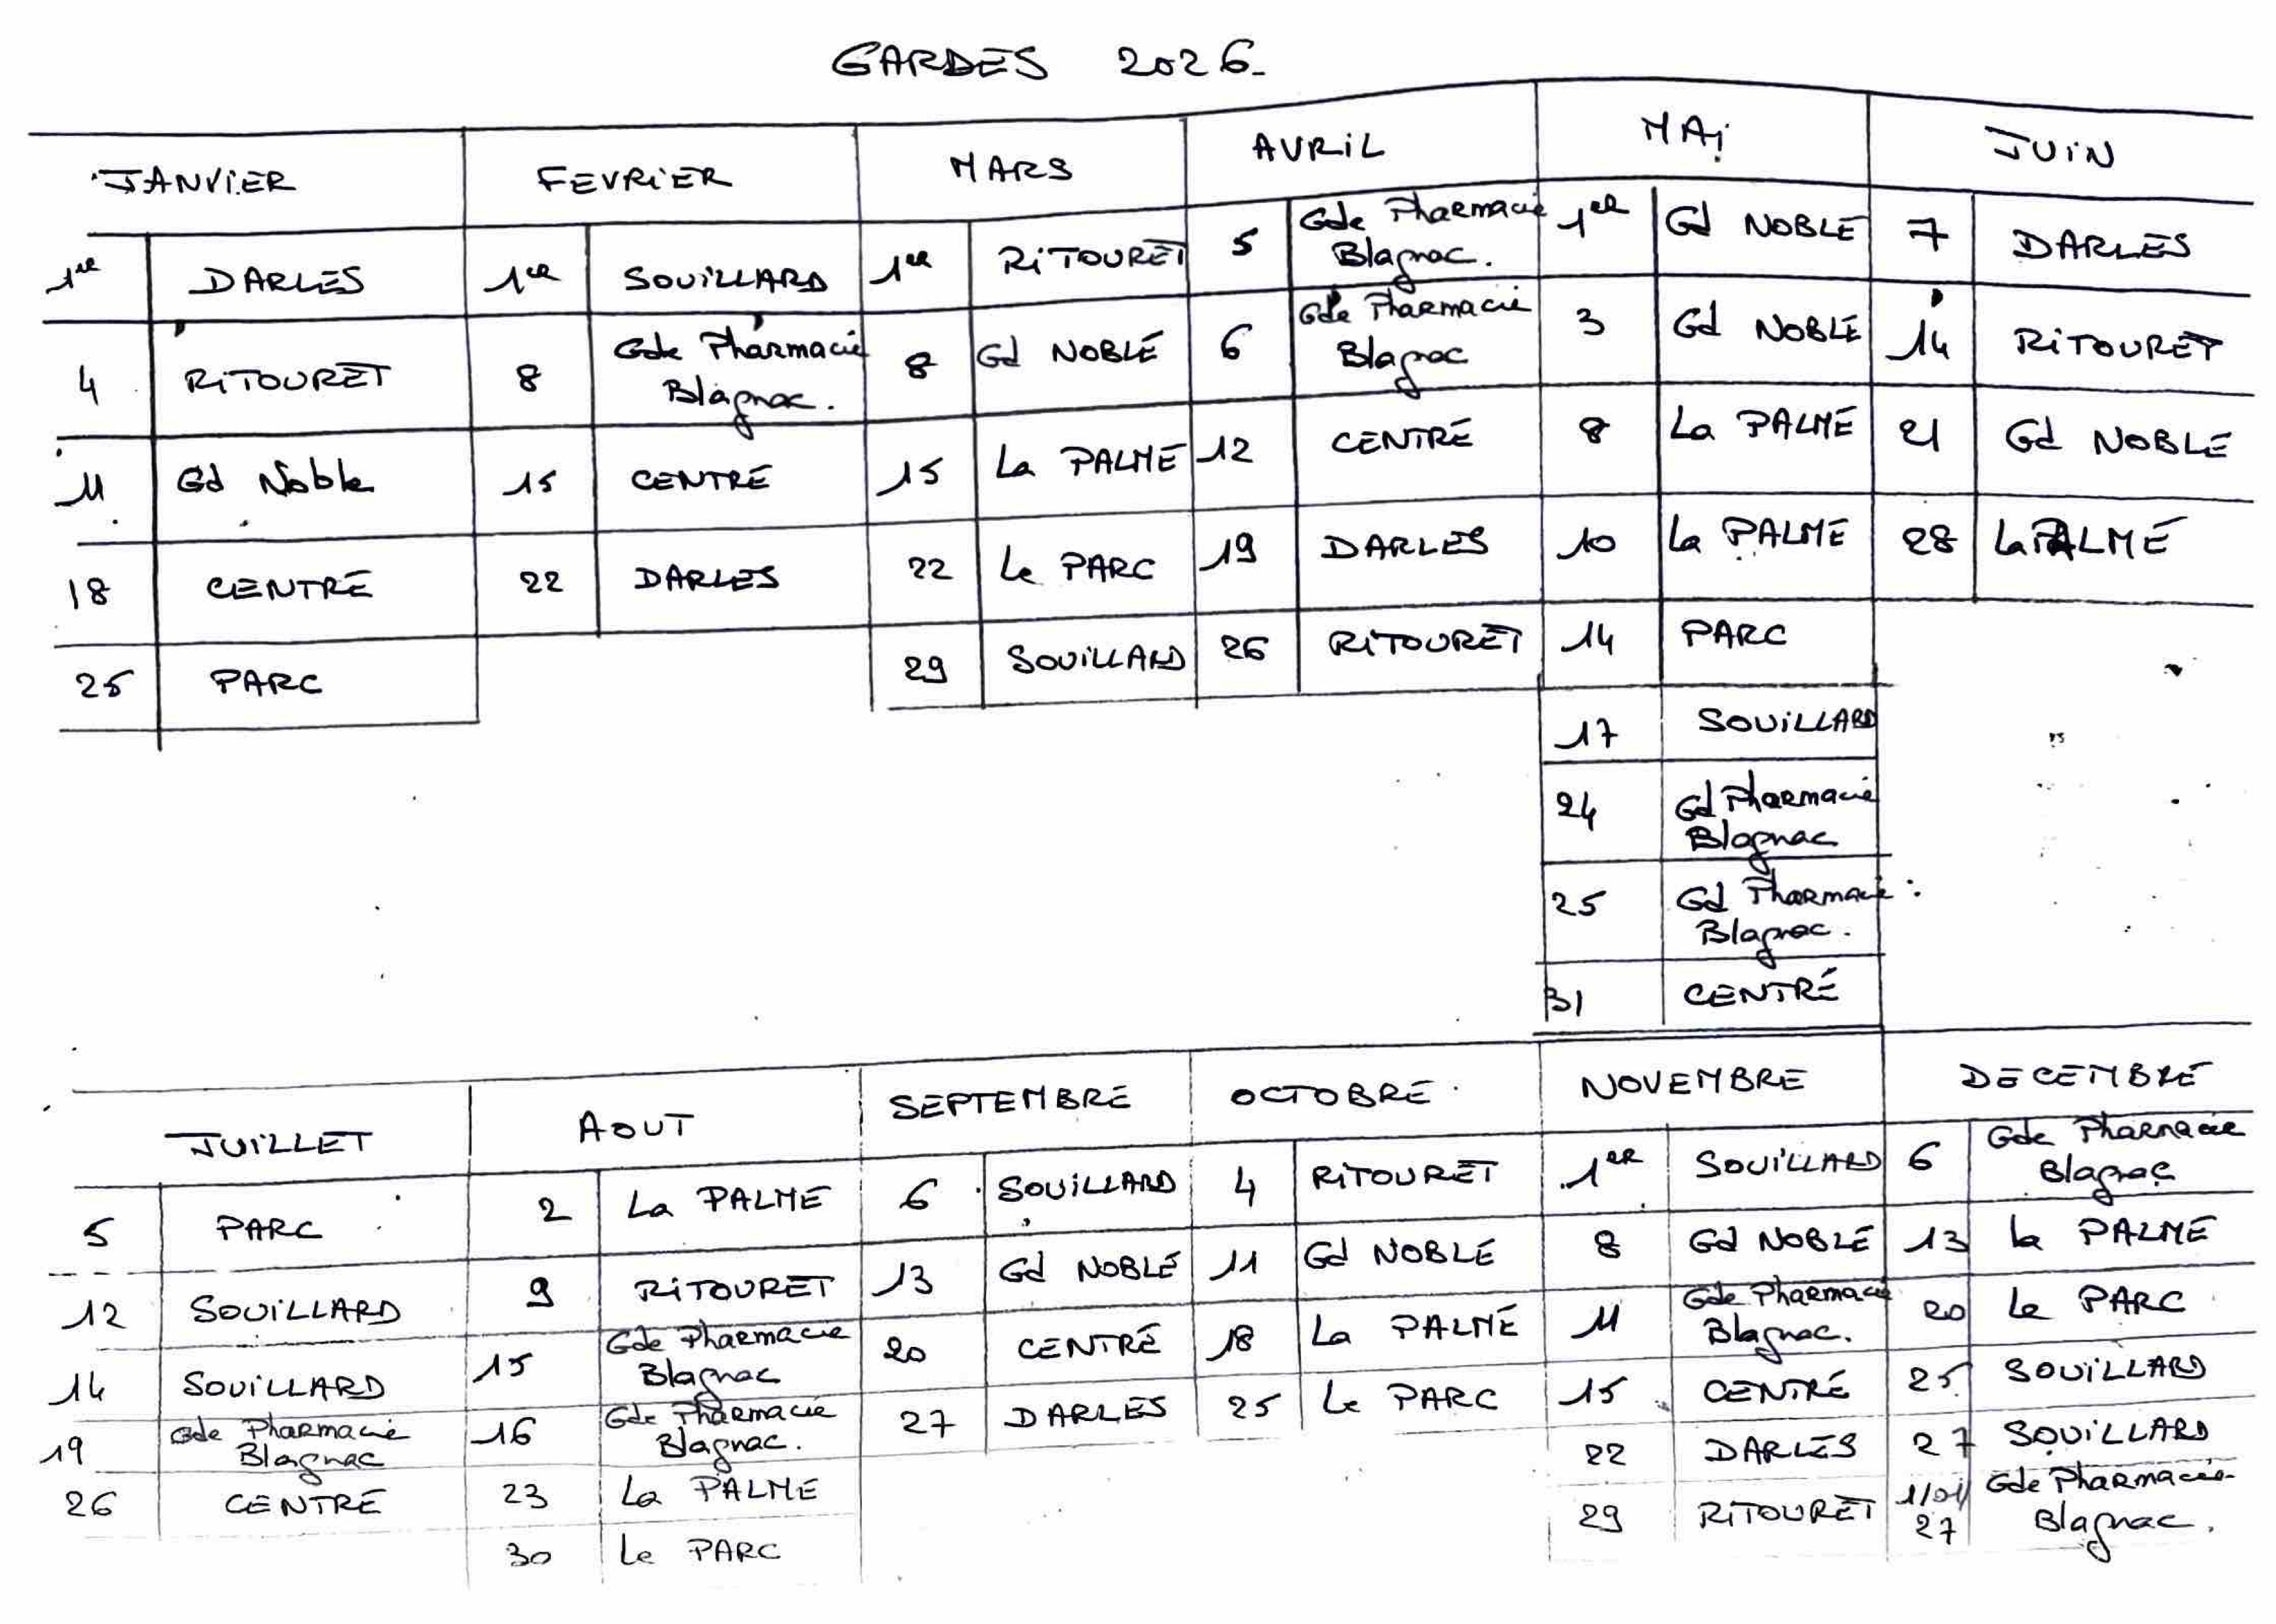 GARDES 2026-
JANVIER
1er DARLES
4 RITOURET
11 Gd Noble
18 CENTRE
25 PARC
FEVRIER
1er SOUILLARD
8 Gde Pharmacie
Blagnac.
15 CENTRE
22 DARLES
MARS
1er RITOURET
8 Gd NOBLE
15 La PALME
22 Le PARC
29 SOUILLARD
AVRIL
5 Gde Pharmacie
Blagnac.
6 Gde Pharmacie
Blagnac
12 CENTRE
19 DARLES
26 RITOURET
MAI
1er Gd NOBLE
3 Gd NOBLE
8 La PALME
10 La PALME
14 PARC
17 SOUILLARD
24 Gd Pharmacie
Blagnac
25 Gd Pharmacie
Blagnac.
31 CENTRE
JUIN
7 DARLES
14 RITOURET
21 Gd NOBLE
28 La PALME
JUILLET
5 PARC
12 SOUILLARD
14 SOUILLARD
19 Gde Pharmacie
Blagnac
26 CENTRE
AOUT
2 La PALME
9 RITOURET
15 Gde Pharmacie
Blagnac
16 Gde Pharmacie
Blagnac.
23 La PALME
30 Le PARC
SEPTEMBRE
6 SOUILLARD
13 Gd NOBLE
20 CENTRE
27 DARLES
OCTOBRE
4 RITOURET
11 Gd NOBLE
18 La PALME
25 Le PARC
NOVEMBRE
1er SOUILLARD
8 Gd NOBLE
11 Gde Pharmacie
Blagnac.
15 CENTRE
22 DARLES
29 RITOURET
DECEMBRE
6 Gde Pharmacie
Blagnac
13 La PALME
20 Le PARC
25 SOUILLARD
27 SOUILLARD
1/01/ Gde Pharmacie
27 Blagnac.